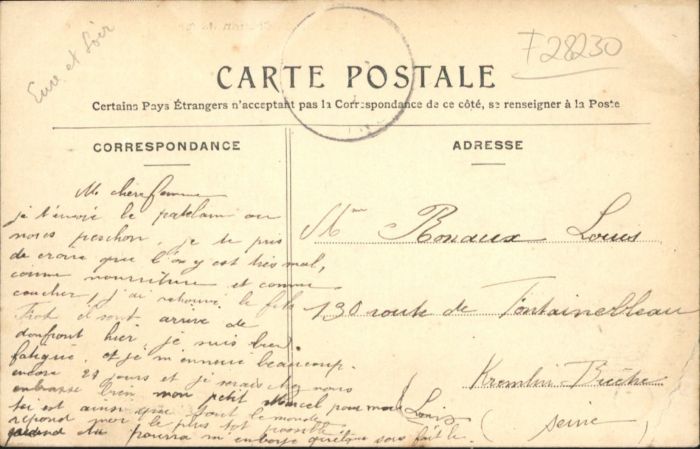 Eure et Loir
F28230
CARTE POSTALE
Certains Pays Étrangers n'acceptant pas la Correspondance de ce côté, se renseigner à la Poste
CORRESPONDANCE
ADRESSE
M. chère femme
je t'envoie le patelain ou
nous , je te pris
de croire que l'on y est très mal,
comme nourriture et comme
coucher, j'ai retrouvé le fils
il sont arrivé de
domfront hier, je suis bien
fatigué, et je m'ennuie beaucoup.
encore 21 jours et je chez nous
embrasse bien mon petit Marcel pour moi
toi est ainsi que tout le monde
répond moi le plus tôt possible
quand tu pourra m'
Louis
Mme Louis
130 route de Fontainebleau
Kremlin-Bicêtre
(Seine)